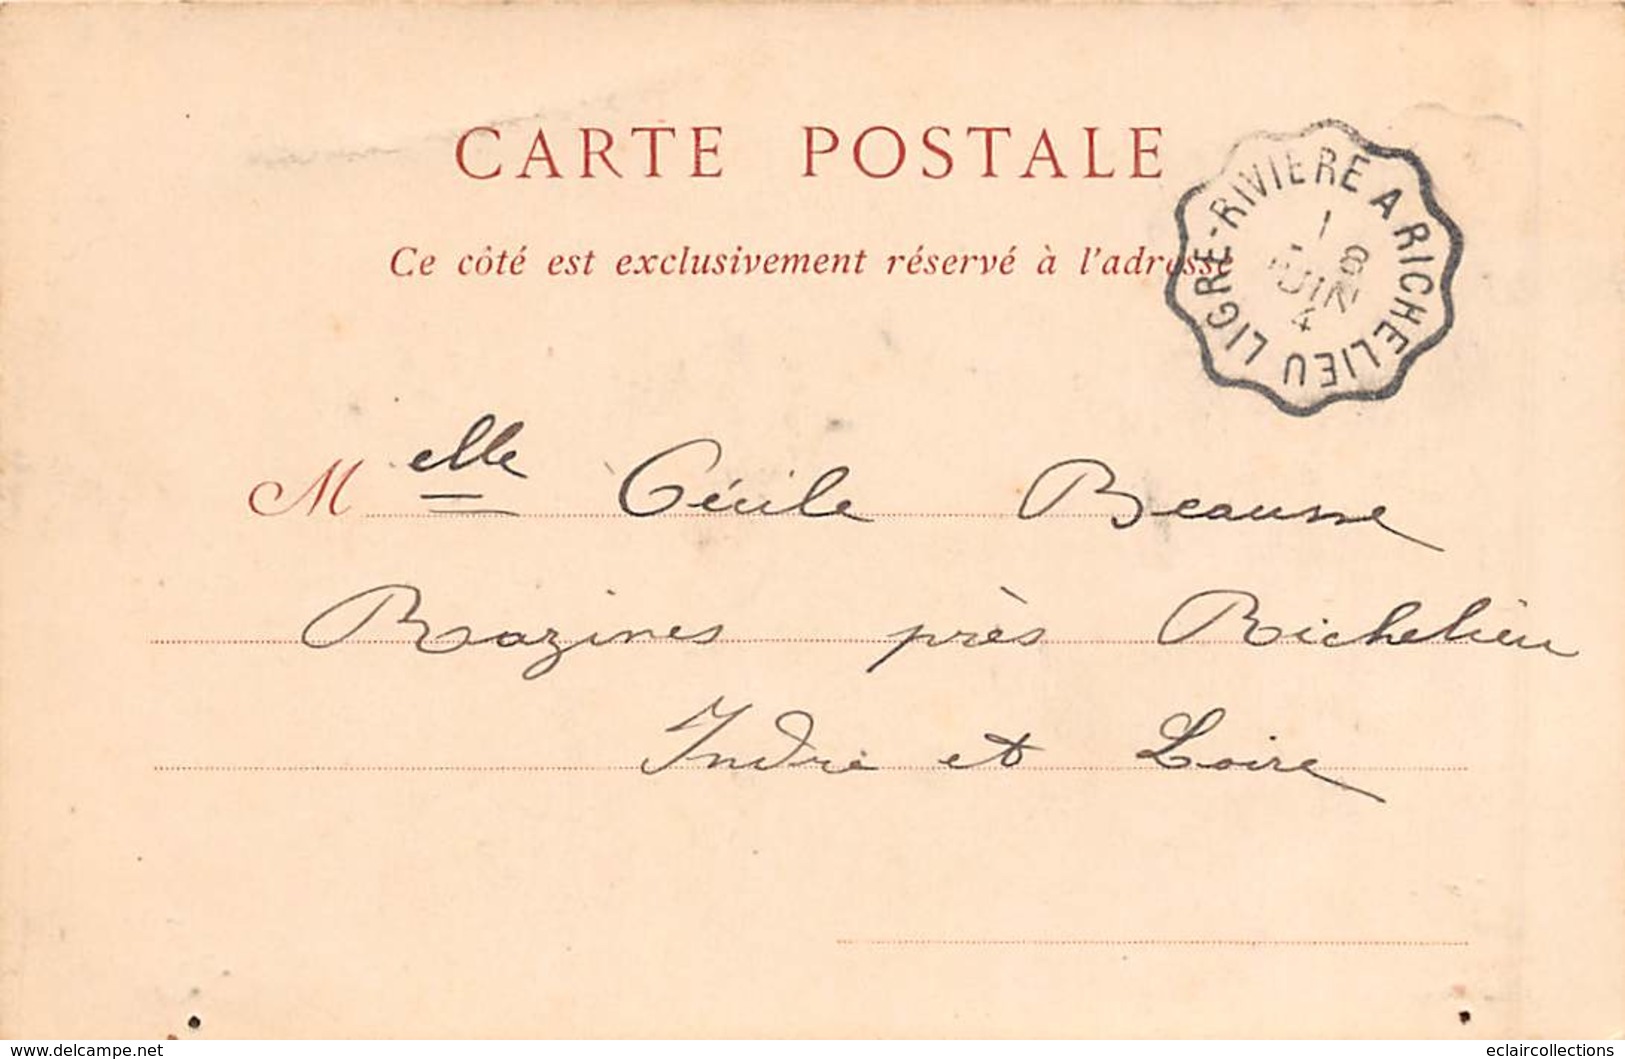 CARTE POSTALE
Ce côté est exclusivement réservé à l'adresse
LIGRE-RIVIERE A RICHELIEU
1
8
JUIN
4
Melle Cécile Beausse
Razines près Richelieu
Indre et Loire
www.delcampe.net
eclaircollections